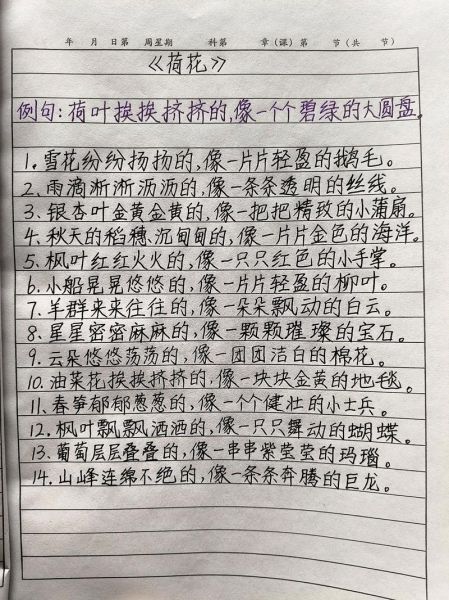 年 月 日第 周星期 科第 章(课)第 节(共 节)
《荷花》
例句:荷叶挨挨挤挤的,像一个个碧绿的大圆盘。
1.雪花纷纷扬扬的,像一片片轻盈的鹅毛。
2.雨滴淅淅沥沥的,像一条条透明的丝线。
3.银杏叶金黄金黄的,像一把把精致的小蒲扇。
4.秋天的稻穗沉甸甸的,像一片片金色的海洋。
5.枫叶红红火火的,像一只只红色的小手掌。
6.小船晃晃悠悠的,像一片片轻盈的柳叶。
7.羊群来来往往的,像一朵朵飘动的白云。
8.星星密密麻麻的,像一颗颗璀璨的宝石。
9.云朵悠悠荡荡的,像一团团洁白的棉花。
10.油菜花挨挨挤挤的,像一块块金黄的地毯。
11.春笋郁郁葱葱的,像一个个健壮的小士兵。
12.枫叶飘飘洒洒的,像一只只舞动的蝴蝶。
13.葡萄层层叠叠的,像一串串紫莹莹的玛瑙。
14.山峰连绵不绝的,像一条条奔腾的巨龙。